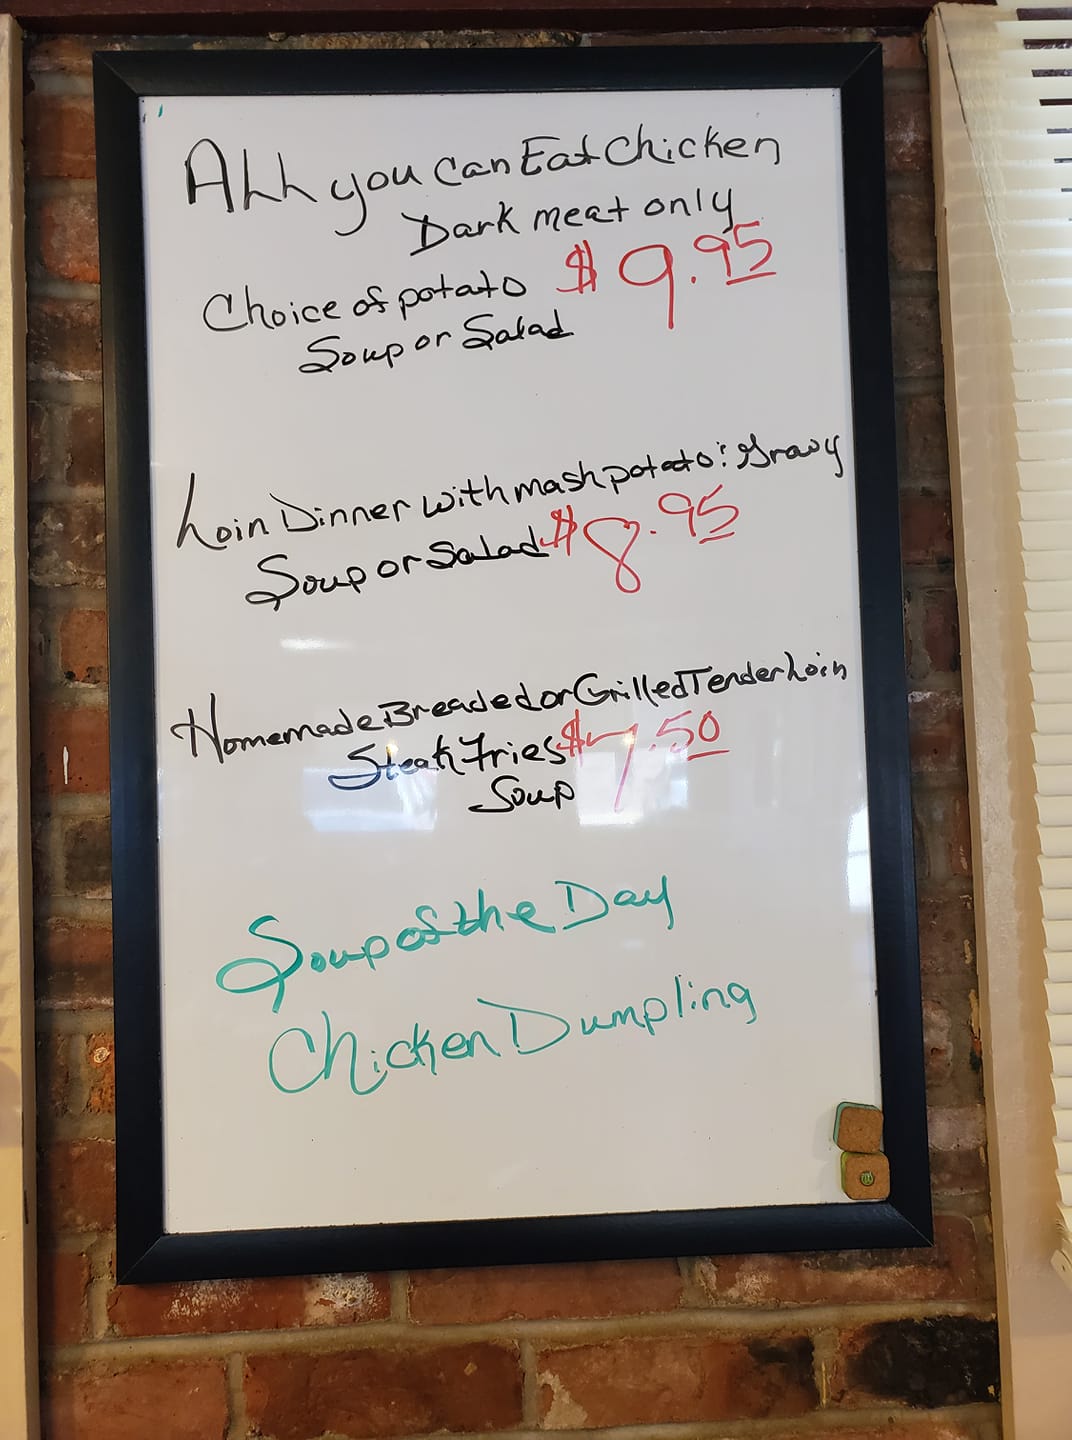 All you Can Eat Chicken
Dark meat only
$9.95
Choice of potato
Soup or Salad
Loin Dinner with mash potato : Gravy
Soup or Salad $8.95
Homemade Breaded or Grilled Tenderloin
Steak Fries $7.50
Soup
Soup of the Day
Chicken Dumpling